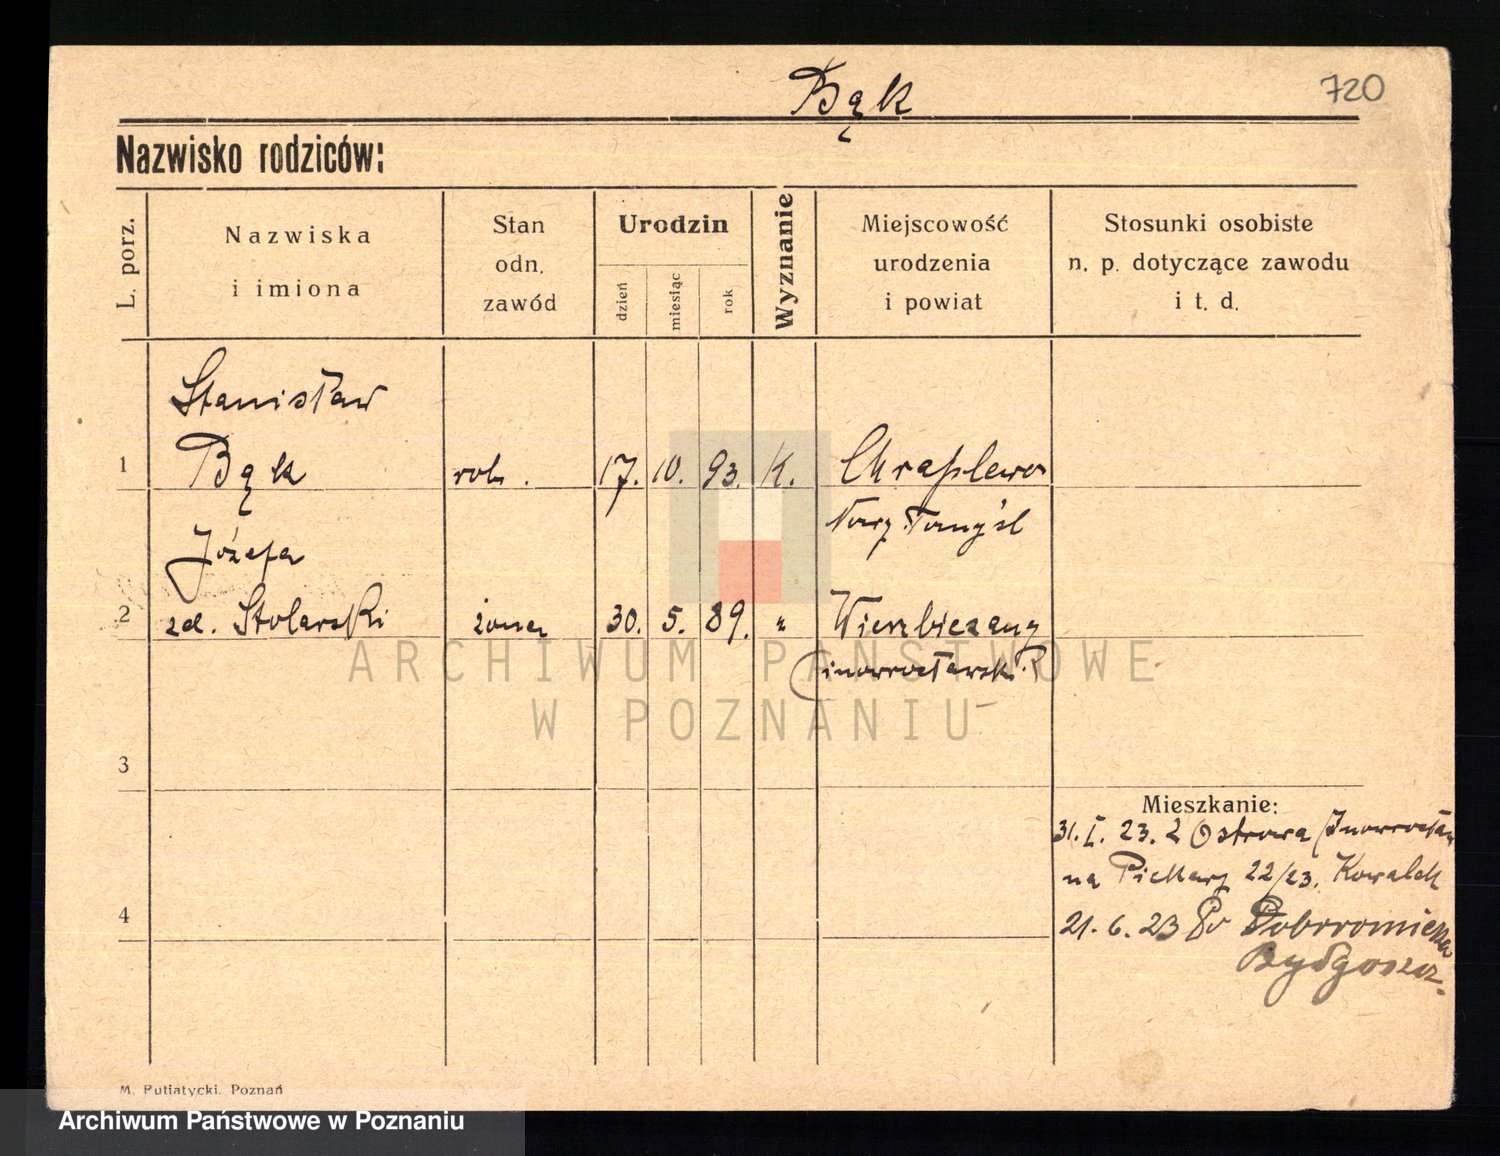 720
Bąk
Nazwisko rodziców:
L. porz.
Nazwiska
i imiona
Stan
odn.
zawód
Urodzin
dzień
miesiąc
rok
Wyznanie
Miejscowość
urodzenia
i powiat
Stosunki osobiste
n. p. dotyczące zawodu
i t. d.
Stanisław
1 Bąk rob. 17. 10. 93. K. Chraplewo
Nowy Tomyśl
Józefa
2 zd. Stolarski żona 30. 5. 89. " Wierzbiczany
inowrocławski
ARCHIWUM PAŃSTWOWE
W POZNANIU
3
Mieszkanie:
31. I. 23. z Ostrowa
na Piekary 22/23. Kowalek
4
21. 6. 23
Bydgoszcz.
M. Putiatycki, Poznań
Archiwum Państwowe w Poznaniu